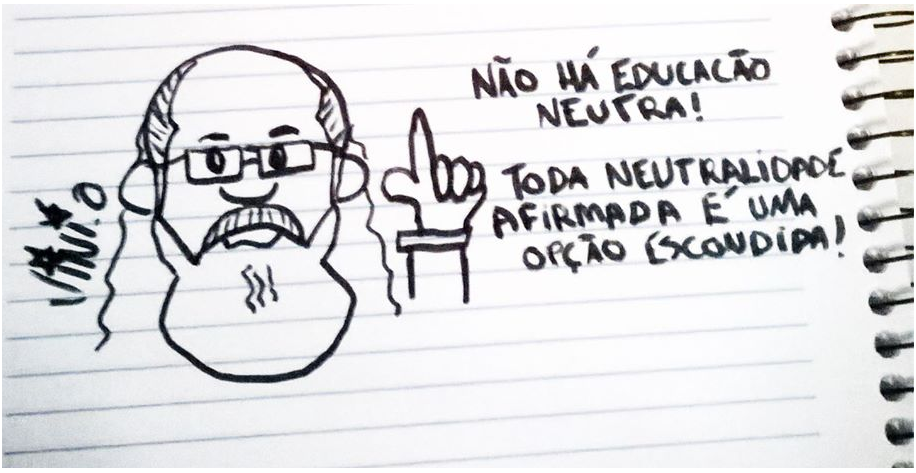 NÃO HÁ EDUCAÇÃO
NEUTRA!
TODA NEUTRALIDADE
AFIRMADA É UMA
OPÇÃO ESCONDIDA!